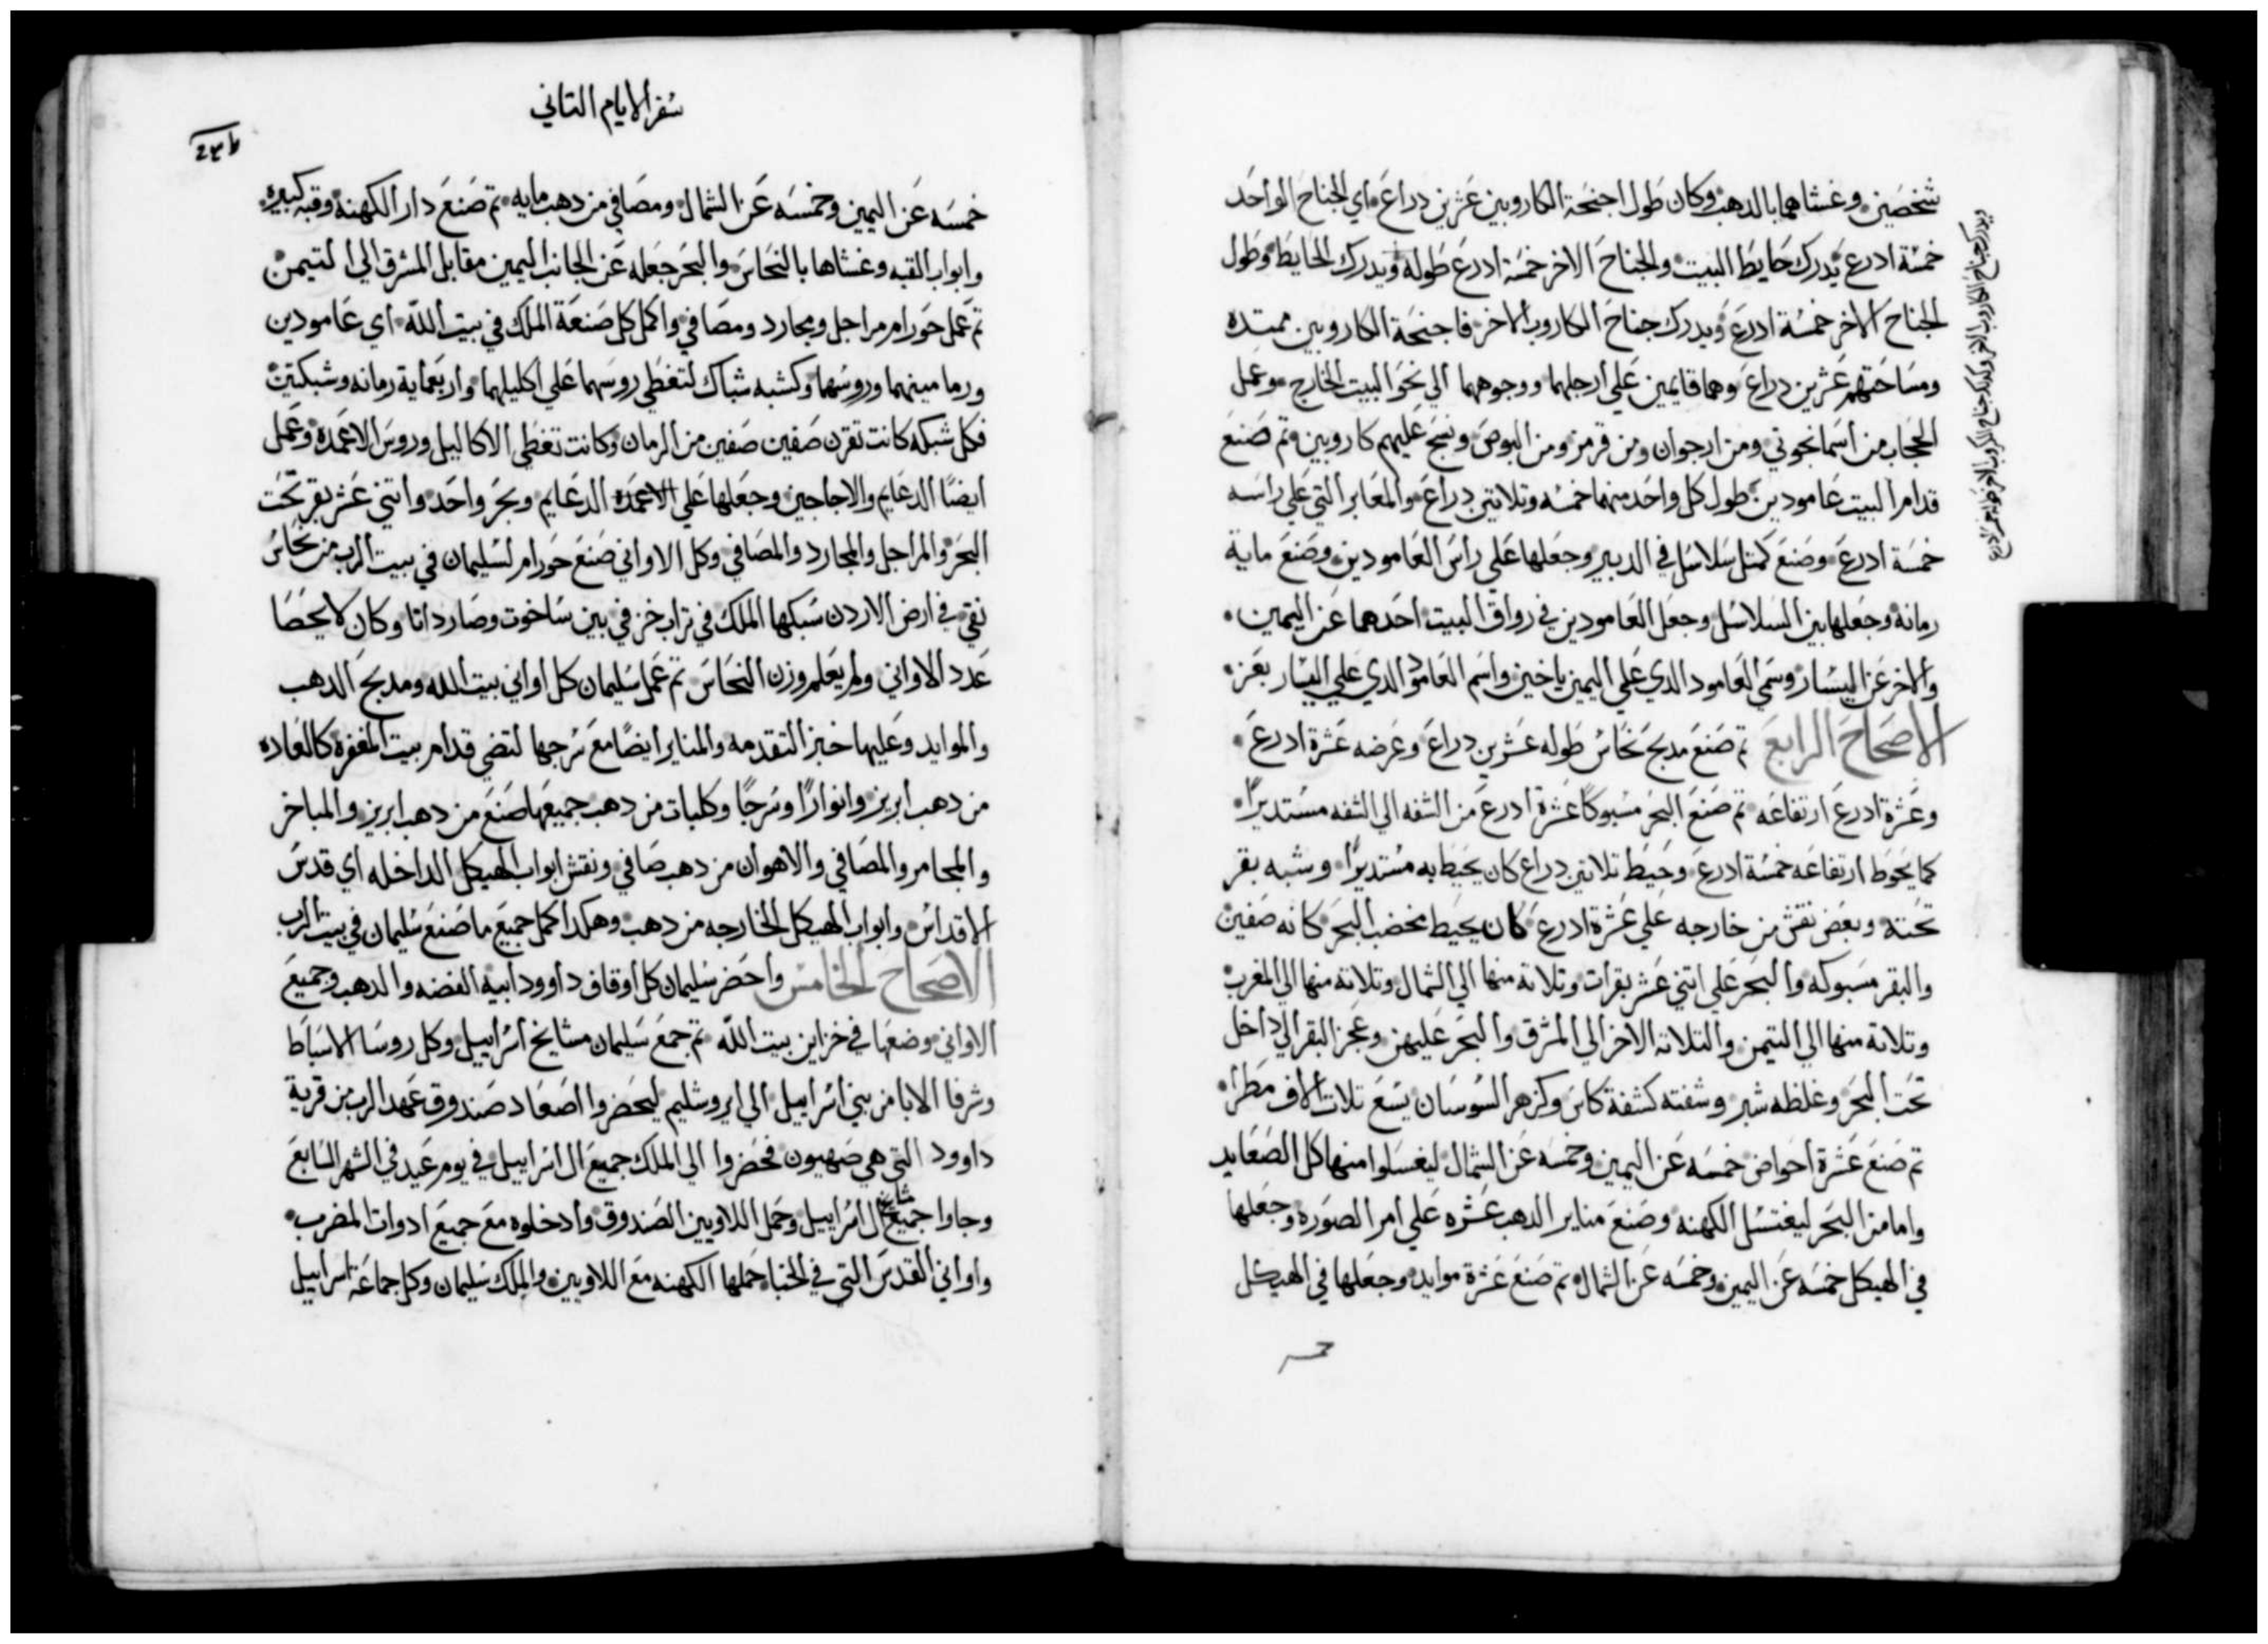 شخصين وغشاهما بالدهب وكان طول اجنحة الكاروبين عشرين دراع اي الجناح الواحد
خمسة ادرع يدرك حايط البيت والجناح الاخر خمسة ادرع طوله ويدرك الحايط وطول
الجناح الاخر خمسة ادرع ويدرك جناح الكاروب الاخر فاجنحة الكاروبين ممتده
ومساحتهم عشرين دراع وهما قايمين علي ارجلهما ووجوههما الي نحو البيت الخارج وعمل
الحجاب من اسمانجوني ومن ارجوان ومن قرمز ومن البوص ونسج عليهم كاروبين تم صنع
قدام البيت عامودين طول كل واحد منهما خمسه وتلاتين دراع والمعابر التي علي راسه
خمسة ادرع وصنع كمتل سلاسل في الدبير وجعلها علي راس العامودين وصنع ماية
رمانة وجعلها بين السلاسل وجعل العامودين في رواق البيت احدهما عن اليمين
والاخر عن اليسار وسمي العامود الدي علي اليمين ياخين واسم العامود الدي علي اليسار بعز
الاصحاح الرابع تم صنع مدبح نحاس طوله عشرين دراع وعرضه عشرة ادرع
وعشرة ادرع ارتفاعه تم صنع البحر مسبوكا عشرة ادرع من الشفه الي الشفه مستديرا
كما يحوط ارتفاعه خمسة ادرع وخيط تلاتين دراع كان يحيط به مستديرا وشبه بقر
تحته وبعض نقش من خارجه علي عشرة ادرع كان يحيط بخضب البحر كانه صفين
والبقر مسبوكه والبحر علي اتني عشر بقرات وتلاته منها الي الشمال وتلاته منها الي المغرب
وتلاتة منها الي التيمن والتلاته الاخر الي المشرق والبحر عليهن وعجز البقر الي داخل
تحت البحر وغلظه شبر وشفته كشفة كاس وكزهر السوسان يسع تلات الاف مطرا
تم صنع عشرة احواض خمسه عن اليمين وخمسه عن الشمال ليغسلوا منها كل الصعايد
واما من البحر ليغتسل الكهنه وصنع مناير الدهب عشره علي امر الصوره وجعلها
في الهيكل خمسه عن اليمين وخمسه عن الشمال تم صنع عشرة موايد وجعلها في الهيكل
سفر الايام التاني
خمسه عن اليمين وخمسه عن الشمال ومصافي من دهب مايه تم صنع دار الكهنه وقبه كبيره
وابواب القبه وغشاها بالنحاس والبحر جعله عن الجانب اليمين مقابل المشرق الي التيمن
تم عمل حورام مراجل ومجارد ومصافي واكمل كل صنعة الملك في بيت الله اي عامودين
ورمامينهما وروسهما وكشبه شباك لتغطي روسهما علي اكليلهما واربعماية رمانه وشبكتين
فكل شبكه كانت تقرن صفين صفين من الرمان وكانت تغطي الاكاليل وروس الاعمده وعمل
ايضا الدعايم والاجاجين وجعلها علي الاعمده الدعايم وبحر واحد واتني عشر بقر تحت
البحر والمراجل والمجارد والمصافي وكل الاواني صنع حورام لسليمان في بيت الرب من نحاس
نقي في ارض الاردن سبكها الملك في تراب خزفي بين ساخوت وصارداتا وكان لا يحصا
عدد الاواني ولم يعلم وزن النحاس تم عمل سليمان كل اواني بيت الله ومدبح الدهب
والموايد وعليها خبز التقدمه والمناير ايضا مع سرجها لتضي قدام بيت المغفره كالعاده
من دهب ابريز وانوارا وسرجا وكلبات من دهب جميعها صنع من دهب ابريز والمباخر
والمجامر والمصافي والاهوان من دهب صافي ونقش ابواب الهيكل الداخله اي قدس
الاقداس وابواب الهيكل الخارجه من دهب وهكدا كمل جميع ما صنع سليمان في بيت الرب
الاصحاح الخامس واحضر سليمان كل اوقاف داوود ابيه الفضه والدهب وجميع
الاواني وضعها في خزاين بيت الله تم جمع سليمان مشايخ اسراييل وكل روسا الاسباط
وشرفا الابا من بني اسراييل الي ايروشليم ليحضروا اصعاد صندوق عهد الرب من قرية
داوود التي هي صهيون فحضروا الي الملك جميع ال اسراييل في يوم عيد في الشهر السابع
وجاوا جميع مشايخ ال اسراييل وحمل اللاويين الصندوق وادخلوه مع جميع ادوات المضرب
واواني القدس التي في الخبا حملها الكهنه مع اللاويين والملك سليمان وكل جماعة اسراييل